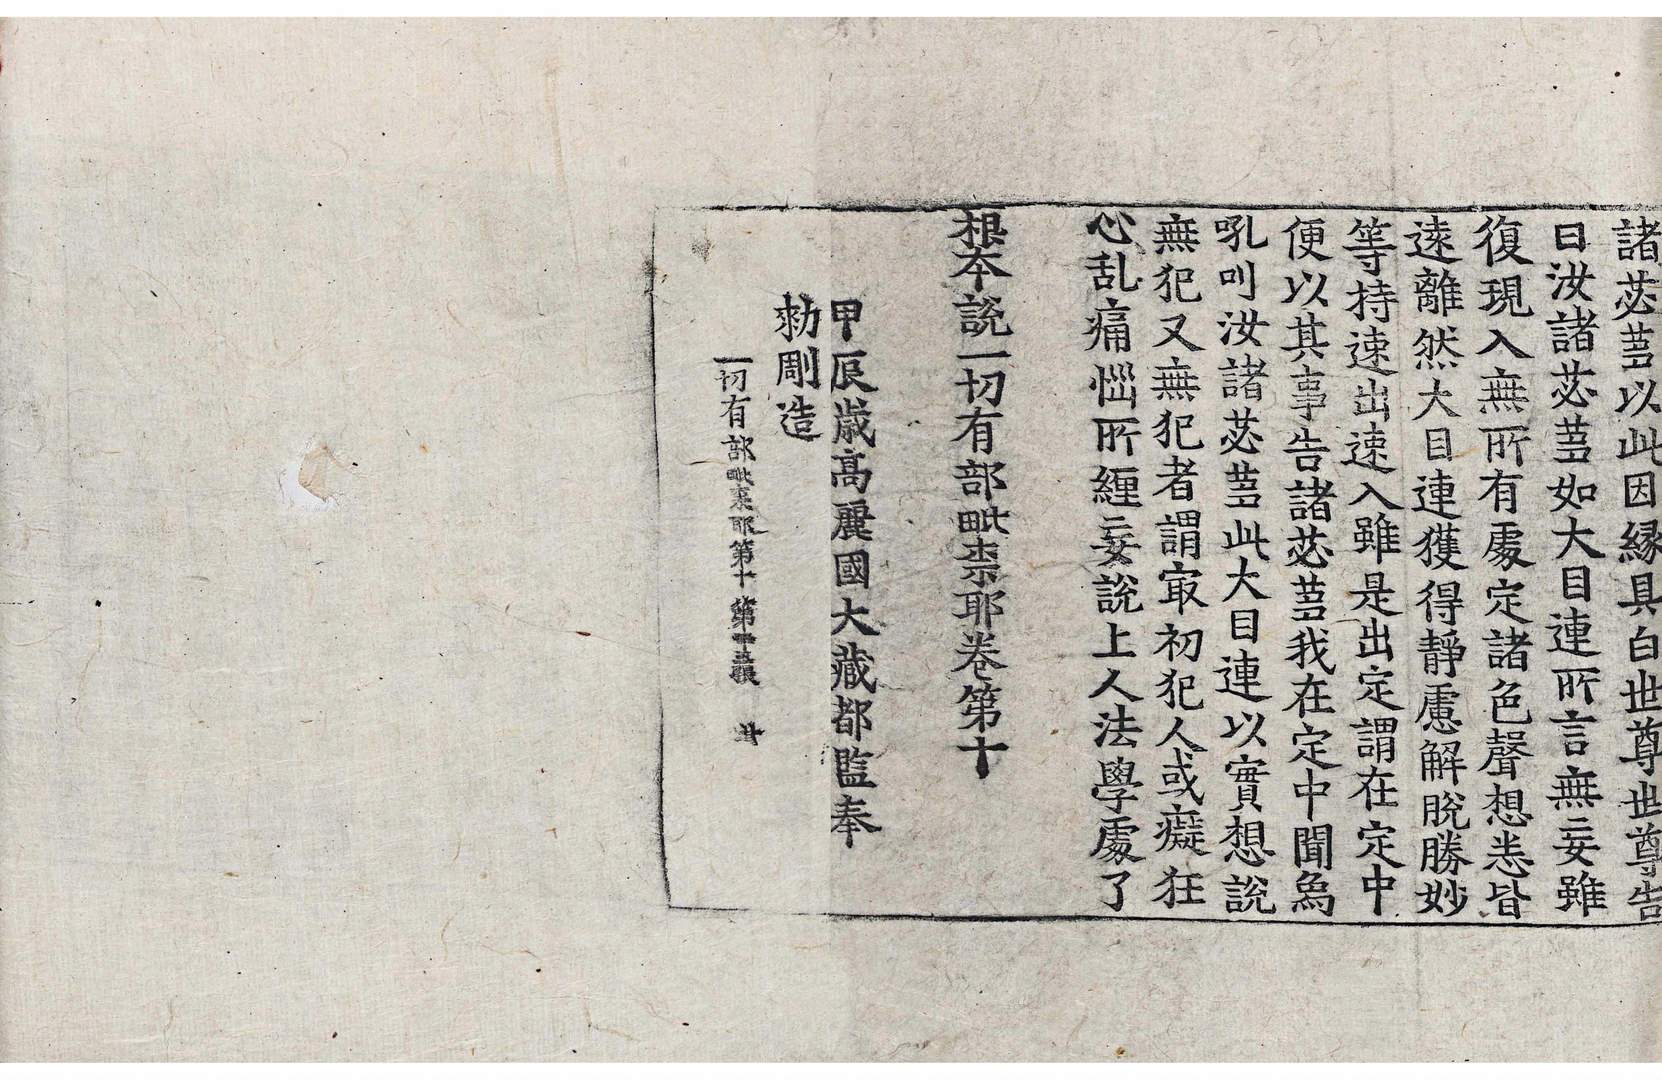 諸苾蒭以此因縁具白世尊世尊告
曰汝諸苾蒭如大目連所言無妄雖
復現入無所有處定諸色聲想悉皆
遠離然大目連獲得靜慮解脫勝妙
等持速出速入雖是出定謂在定中
便以其事告諸苾蒭我在定中聞象
吼叫汝諸苾蒭此大目連以實想說
無犯又無犯者謂㝡初犯人或癡狂
心乱痛惱所纏妄說上人法學處了
根本說一切有部毗柰耶卷第十
甲辰歳高麗國大藏都監奉
勑彫造
一切有部毗柰耶第十 第 張